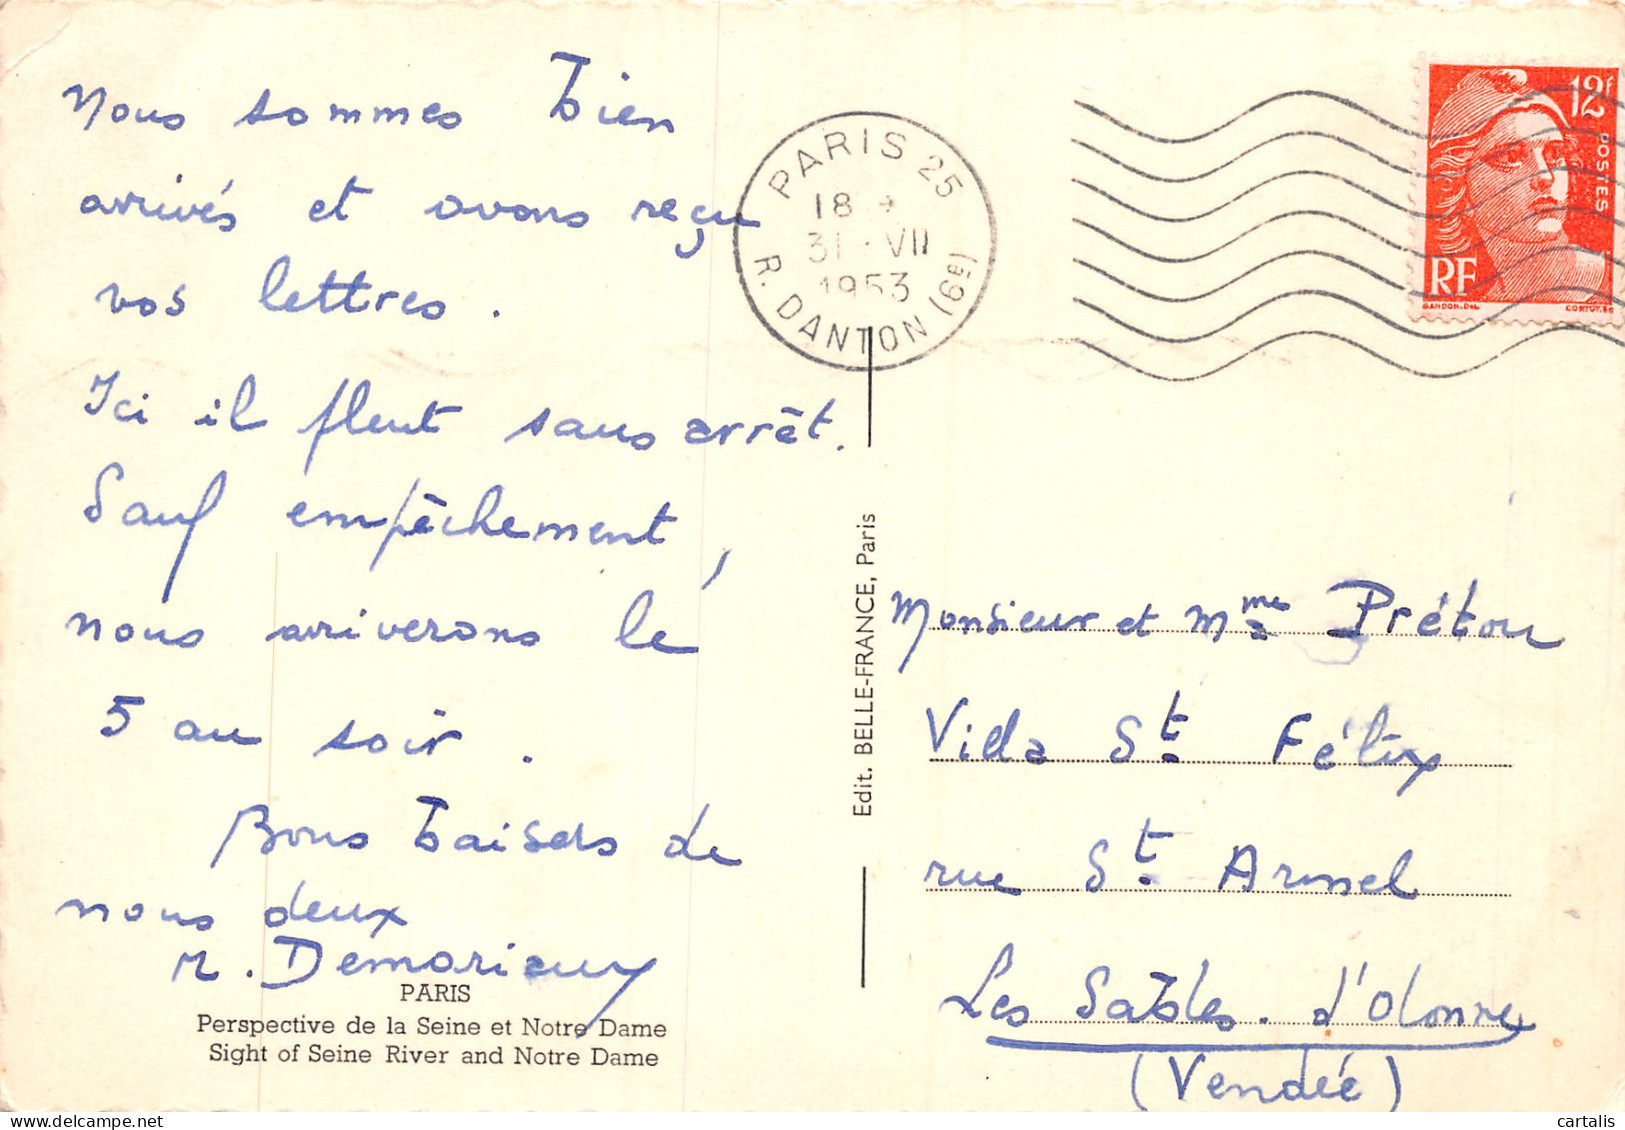 Nous sommes bien
arrivés et avons reçu
vos lettres.
Ici il pleut sans arrêt.
Sauf empêchement,
nous arriverons le
5 au soir.
Bons baisers de
nous deux
PARIS
Perspective de la Seine et Notre Dame
Sight of Seine River and Notre Dame
Edit. BELLE-FRANCE, Paris
PARIS 25
18
31 · VII
1953
R. DANTON (6E)
12F
POSTES
RF
GANDON. DEL.
Monsieur et Mme Prétou
Villa St. Félix
rue St. Armel
Les Sables. d'Olonne
(Vendée)
cartalis